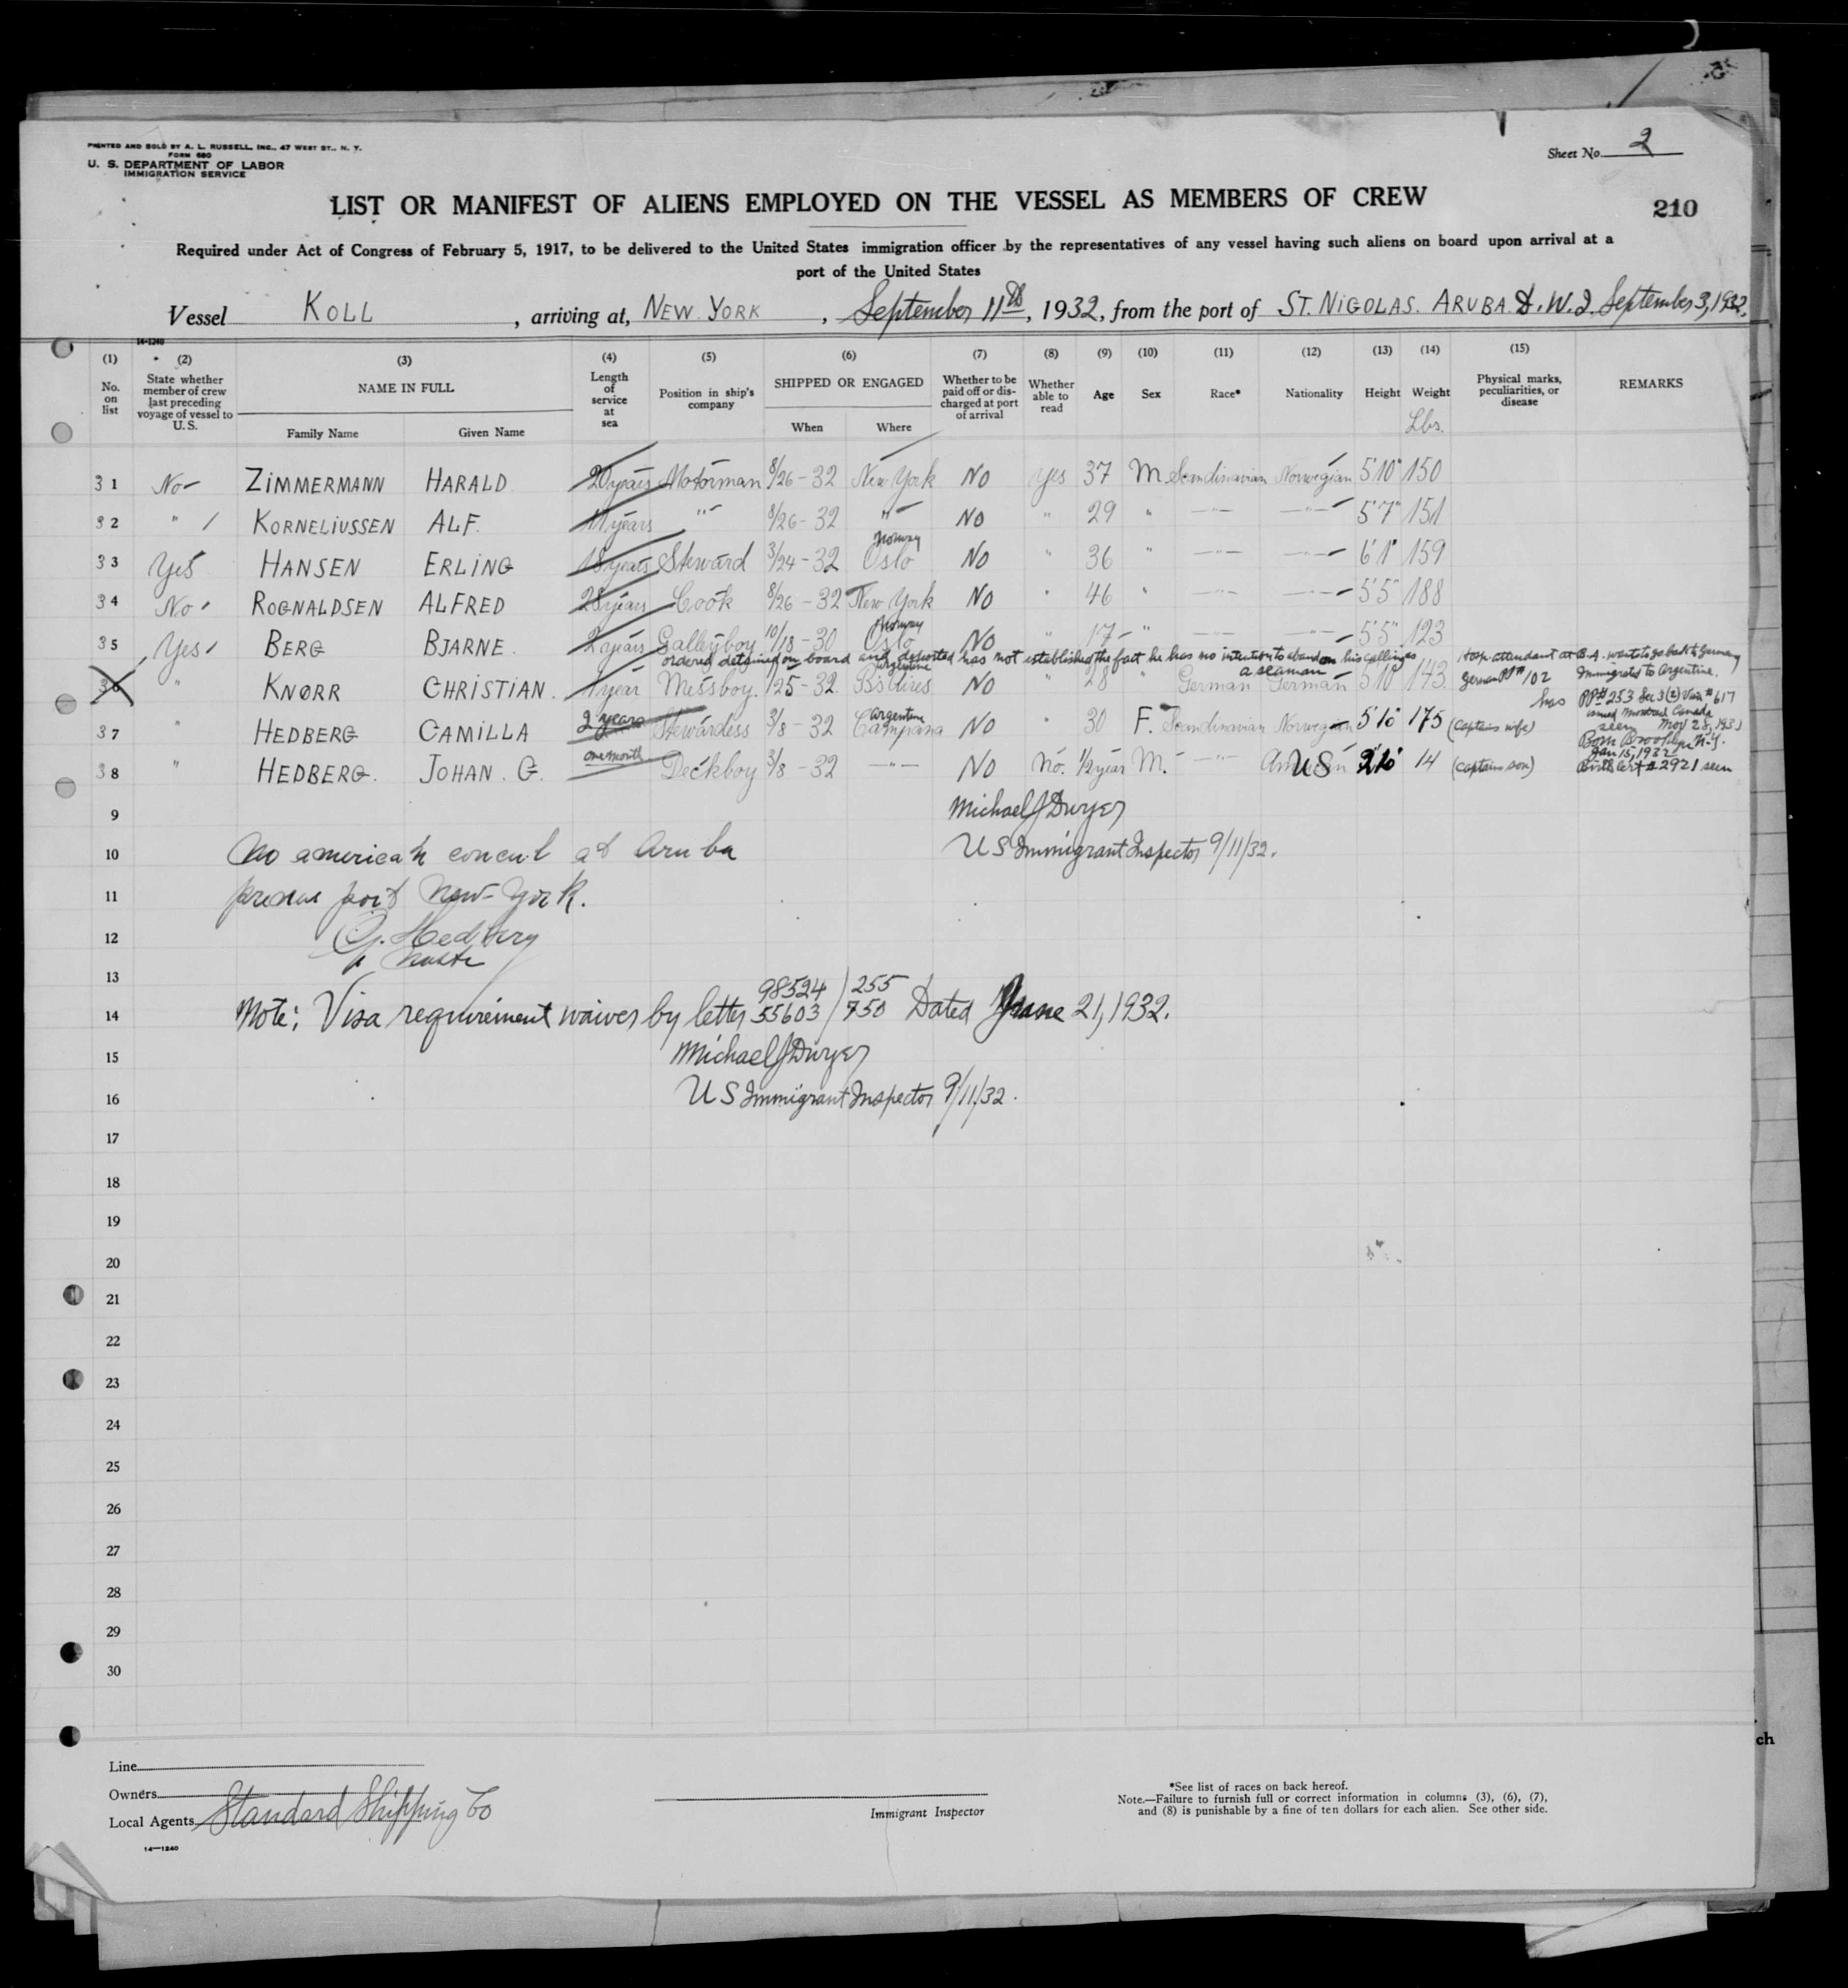 PRINTED AND SOLD BY A. L. RUSSELL, INC., 47 WEST ST., N. Y.
FORM 680
U. S. DEPARTMENT OF LABOR
IMMIGRATION SERVICE
Sheet No. 2
LIST OR MANIFEST OF ALIENS EMPLOYED ON THE VESSEL AS MEMBERS OF CREW
210
Required under Act of Congress of February 5, 1917, to be delivered to the United States immigration officer by the representatives of any vessel having such aliens on board upon arrival at a
port of the United States
Vessel KOLL, arriving at, NEW YORK, September 11th, 1932, from the port of ST. NIGOLAS. ARUBA D.W.I. September 3, 1932.
14-1240
(1) (2) (3) (4) (5) (6) (7) (8) (9) (10) (11) (12) (13) (14) (15)
No. on list
State whether member of crew last preceding voyage of vessel to U.S.
NAME IN FULL
Family Name Given Name
Length of service at sea
Position in ship's company
SHIPPED OR ENGAGED
When Where
Whether to be paid off or discharged at port of arrival
Whether able to read
Age Sex Race* Nationality Height Weight
Lbs.
Physical marks, peculiarities, or disease
REMARKS
31 No ZIMMERMANN HARALD 20 years Motorman 8/26-32 New York No Yes 37 M Scandinavian Norwegian 5'10" 150
32 " KORNELIUSSEN ALF. 11 years " 8/26-32 " No " 29 " " " 5'7" 151
33 Yes HANSEN ERLING 18 years Steward 3/24-32 Oslo Norway No " 36 " " " 6'1" 159
34 No ROGNALDSEN ALFRED 28 years Cook 8/26-32 New York No " 46 " " " 5'5" 188
35 Yes BERG BJARNE. 2 years Galleyboy 10/18-30 Oslo Norway No " 17 " " " 5'5" 123
ordered detained on board and deported has not established the fact he has no intention to abandon his calling as a seaman
Hosp. attendant at B.A. wants to go back to Germany
Immigrated to Argentine.
36 " KNØRR CHRISTIAN. 1 year Messboy. 125-32. Bs Aires Argentine No " 28 " German German 5'10" 143 German PP# 102
has PP# 253 Sec 3(2) Visa # 617
issued Montreal Canada
seen Nov 28, 1931
37 " HEDBERG CAMILLA 2 years Stewardess 3/8-32 Campana Argentine No " 30 F. Scandinavian Norwegian 5'10" 175 (Captains wife)
Born Brooklyn N.Y.
Jan 15, 1932
38 " HEDBERG. JOHAN. G. one month Deckboy 3/8-32 " No No. 1/2 year M. " US 14 (Captains son) Birth Cert # 2921 seen
9
Michael J Dwyer
10 No american concul at Aruba
US Immigrant Inspector 9/11/32.
11 New-York.
12 G. Hedberg
13
14 Note: Visa requirement waiver by letter 98524/255 55603/750 Dated June 21, 1932.
15 Michael J Dwyer
16 US Immigrant Inspector 9/11/32.
17
18
19
20
21
22
23
24
25
26
27
28
29
30
Line
Owners
Local Agents Standard Shipping Co
14—1240
Immigrant Inspector
*See list of races on back hereof.
Note.—Failure to furnish full or correct information in columns (3), (6), (7),
and (8) is punishable by a fine of ten dollars for each alien. See other side.
ch